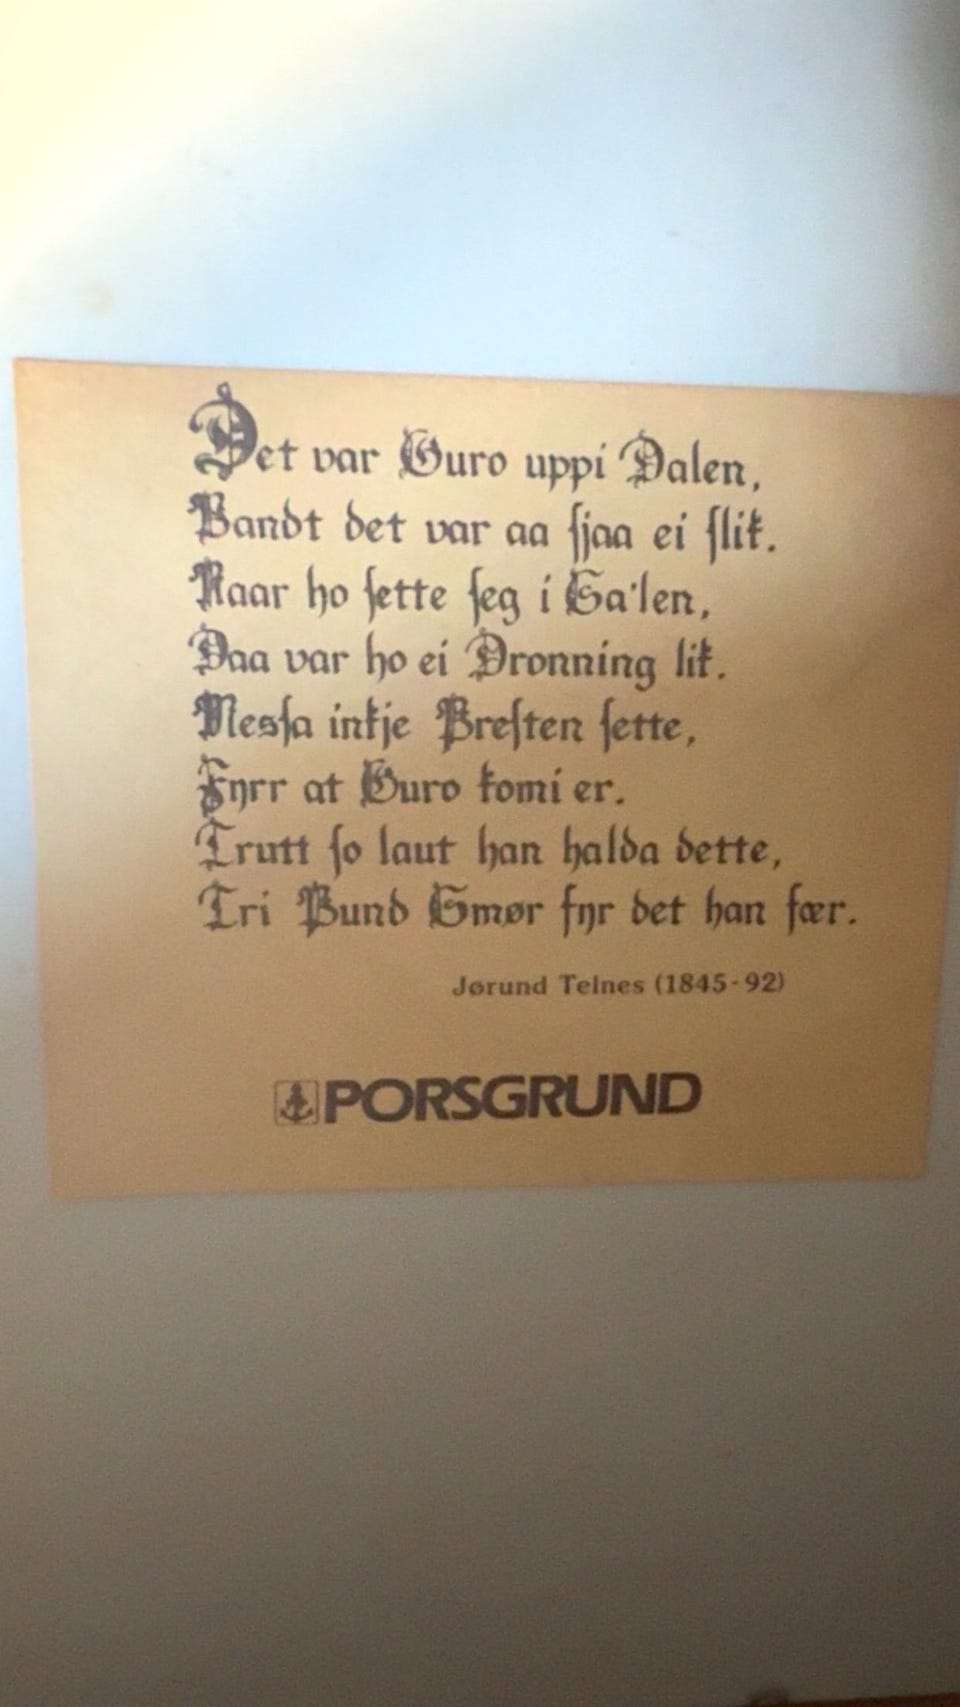 Det var Guro uppi Dalen,
Vandt det var aa sjaa ei slik.
Naar ho sette seg i Sa'len,
Daa var ho ei Dronning lik.
Messa inkje Presten sette,
Fyrr at Guro komi er.
Trutt so laut han halda dette,
Tri Pund Smør fyr det han fær.
Jørund Telnes (1845-92)
PORSGRUND